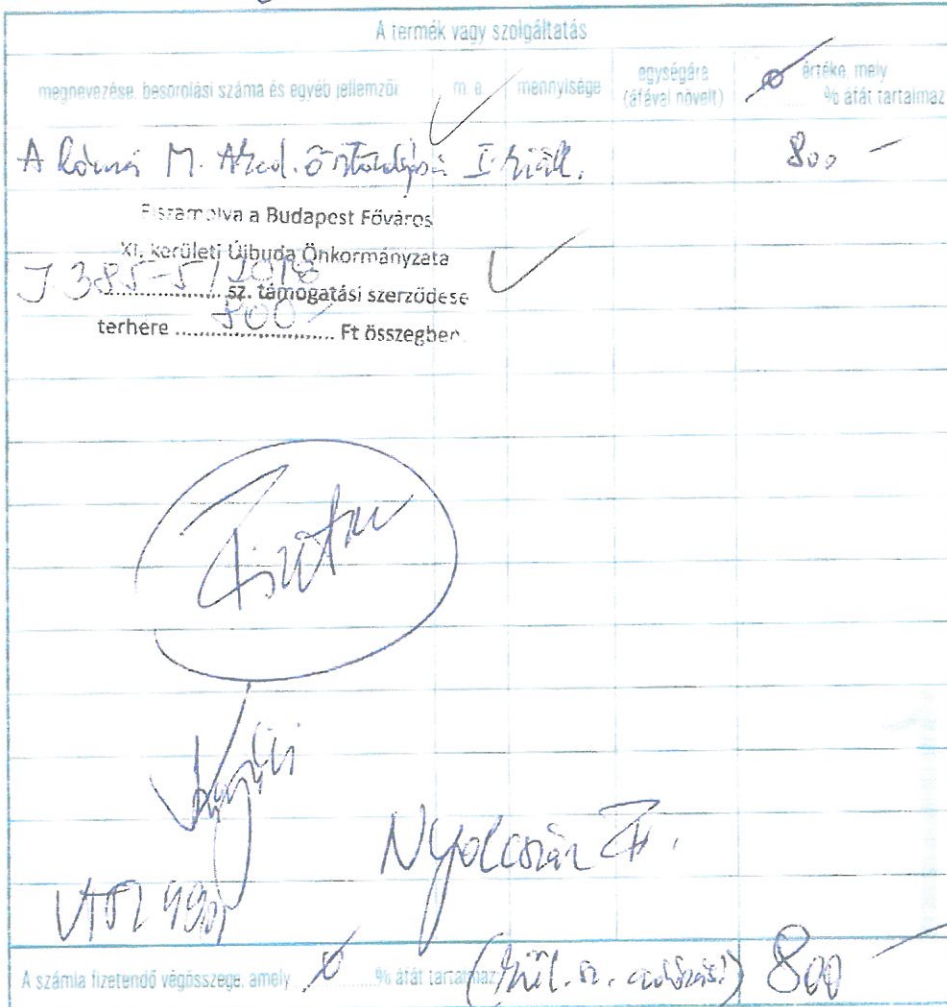 A termék vagy szolgáltatás
megnevezése, besorolási száma és egyéb jellemzői m. e. mennyisége egységára (áfával növelt) értéke, mely % áfát tartalmaz
A Római M. Akad. I. 800 –
Elszámolva a Budapest Főváros
XI. kerületi Újbuda Önkormányzata
J 385-5/2018 sz. támogatási szerződése
terhére 800 – Ft összegben.
Fizetve
Nyolcszáz Ft.
VTSZ
A számla fizetendő végösszege, amely % áfát tartalmaz 800 –